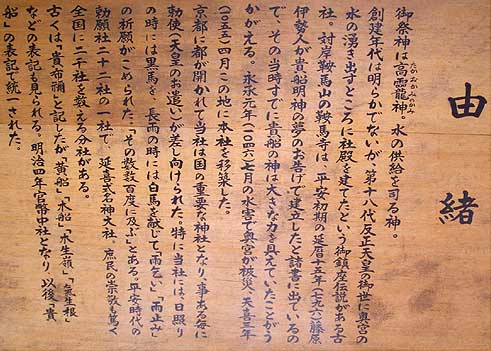 由緒
御祭神は高龗神。水の供給を司る神。
たかおかみのかみ
創建年代は明らかでないが、第十八代反正天皇の御世に奥宮の
水の湧き出すところに社殿を建てたという御鎮座伝説がある古
社。対岸鞍馬山の鞍馬寺は、平安初期の延暦十五年(七九六)藤原
伊勢人が貴船明神の夢のお告げで建立したと諸書に出ているの
で、その当時すでに貴船の神は大きな力を見えていたことがう
かがえる。永承元年(一〇四六)七月の水害で奥宮が被災、天喜三年
(一〇五五)四月、この地に本社を移築した。
京都に都が開かれて当社は国の重要な神社となり、事ある毎に
勅使(天皇のお遣い)が差し向けられた。特に当社には、日照り
の時には黒馬を、長雨の時には白馬を献じて「雨乞い」「雨止み」
の祈願がこめられた。「その数数百度に及ぶ」とある。平安時代の
勅願社二十二社の一社で、延喜式名神大社。庶民の崇敬も篤く
全国に二千社を数える分社がある。
古くは「貴布禰」と記したが、「黄船」「木船」「木生嶺」「気生根」
などの表記も見られる。明治四年、官幣中社となり、以後「貴
船」の表記で統一された。